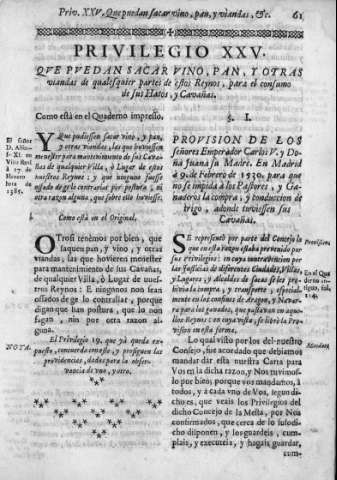 Priv. XXV. Que puedan sacar vino, pan, y viandas, &c. 61
PRIVILEGIO XXV.
QVE PVEDAN SACAR VINO, PAN, Y OTRAS
viandas de qualesquier partes de estos Reynos, para el consumo
de sus Hatos, y Cavañas.
Como está en el Quaderno impresso.
El señor
D. Alfon-
so XI. en
Villa Real
à 17. de
Que pudiessen sacar vino, y pan,
y otras viandas, las que huviessen
menester para mantenimiento de sus Cava-
ñas de qualquier Villa, ò Lugar de estos
nuestros Reynos; y que ninguno fuesse
ossado de ge lo contrallar por postura, ni
otra razon alguna, que sobre ello huviesse.
Como está en el Original.
Otrosi tenemos por bien, que
saquen pan, y vino, y otras
viandas, las que hovieren menester
para mantenimiento de sus Cavañas,
de qualquier Villa, ò Lugar de nues-
tros Reynos: è ningunos no sean
ossados de ge lo contrallar, porque
digan que han postura, que lo non
fagan, nin por otra razon al-
guna.
NOTA.
El Privilegio 19. que yà queda ex-
puesto, concuerda con este, y prosiguen las
providencias, dadas para la obser-
vancia de uno, y otro.
§. I.
PROVISION DE LOS
señores Emperador Carlos V. y Do-
ña Juana su Madre. En Madrid
à 9. de Febrero de 1530. para que
no se impida à los Pastores, y Ga-
naderos la compra, y conduccion de
trigo, adonde tuviessen sus
Cavañas.
Se representò por parte del Concejo la
que en esta razon estaba prevenido por
sus privilegios: en cuya contravencion por
las Justicias de diferentes Ciudades, Villas,
y Lugares y Alcaldes de sacas se les prohibia
la compra de pan, y transporte, especial-
mente en los confines de Aragon, y Navar-
ra para los ganados, que pastavan en aque-
llos Reynos: en cuya vista, se librò la Pro-
vision en esta forma.
Lo qual visto por los del nuestro
Consejo, fue acordado que debiamos
mandar dàr esta nuestra Carta para
Vos en la dicha razon, y Nos tuvimos-
lo por bien; porque vos mandamos, à
todos, y à cada uno de Vos, segun di-
cho es, que veais los Privilegios del
dicho Concejo de la Mesta, por Nos
confirmados, que cerca de lo susodi-
cho disponen, y los guardeis, cum-
plais, y executeis, y hagais guardar,
cum-